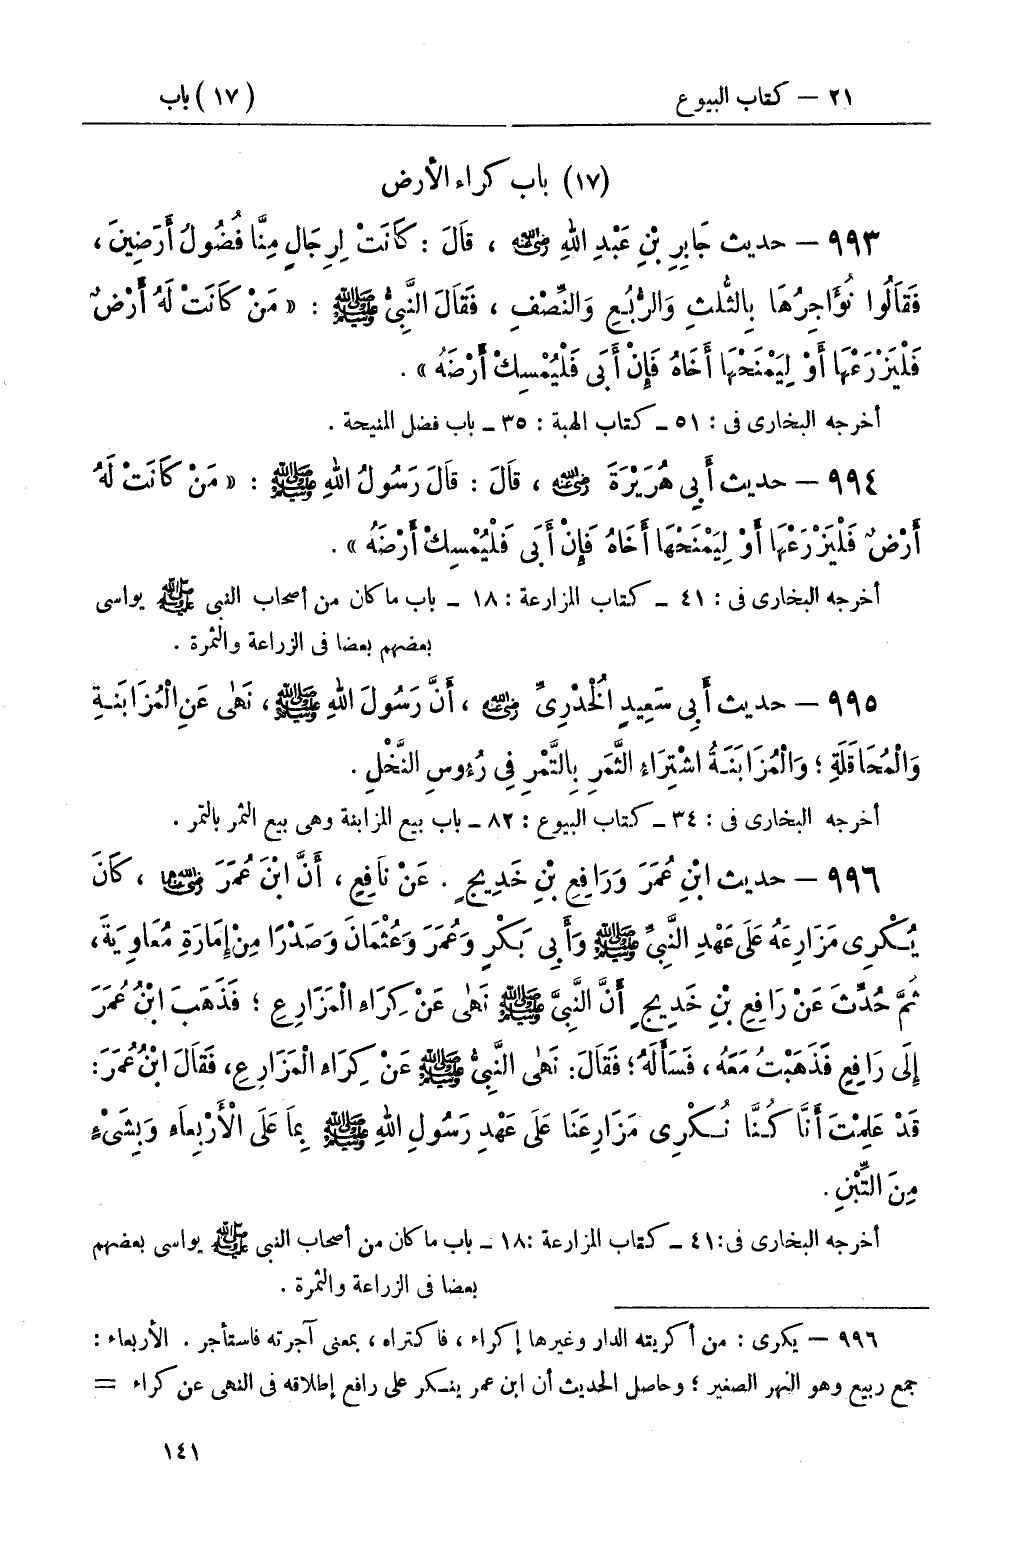 ٢١ – كتاب البيوع (١٧) باب
(١٧) باب كراء الأرض
٩٩٣ – حديث جَابِرِ بْنِ عَبْدِ اللهِ رضي الله عنه ، قَالَ : كَانَتْ لِرِجَالٍ مِنَّا فُضُولُ أَرَضِينَ ،
فَقَالُوا نُؤَاجِرُهَا بِالثُّلثِ وَالرُّبُعِ وَالنِّصْفِ ، فَقَالَ النَّبِيُّ ﷺ : « مَنْ كَانَتْ لَهُ أَرْضٌ
فَلْيَزْرَعْهَا أَوْ لِيَمْنَحْهَا أَخَاهُ فَإِنْ أَبَى فَلْيُمْسِكْ أَرْضَهُ » .
أخرجه البخارى فى : ٥١ ـ كتاب الهبة : ٣٥ ـ باب فضل المنيحة .
٩٩٤ – حديث أَبِى هُرَيْرَةَ رضي الله عنه ، قَالَ : قَالَ رَسُولُ اللهِ ﷺ : « مَنْ كَانَتْ لَهُ
أَرْضٌ فَلْيَزْرَعْهَا أَوْ لِيَمْنَحْهَا أَخَاهُ فَإِنْ أَبَى فَلْيُمْسِكْ أَرْضَهُ » .
أخرجه البخارى فى : ٤١ ـ كتاب المزارعة : ١٨ ـ باب ما كان من أصحاب النبى ﷺ يواسى
بعضهم بعضا فى الزراعة والثمرة .
٩٩٥ – حديث أَبِى سَعِيدٍ الْخُدْرِىِّ رضي الله عنه ، أَنَّ رَسُولَ اللهِ ﷺ ، نَهَى عَنِ الْمُزَابَنَةِ
وَالْمُحَاقَلَةِ ؛ وَالْمُزَابَنَةُ اشْتِرَاءِ الثَّمَرِ بِالتَّمْرِ فِى رُءُوسِ النَّخْلِ .
أخرجه البخارى فى : ٣٤ ـ كتاب البيوع : ٨٢ ـ باب بيع المزابنة وهى بيع الثمر بالتمر .
٩٩٦ – حديث ابْنِ عُمَرَ وَرَافِعِ بْنِ خَدِيجٍ . عَنْ نَافِعٍ ، أَنَّ ابْنَ عُمَرَ رضي الله عنهما ، كَانَ
يُكْرِى مَزَارِعَهُ عَلَى عَهْدِ النَّبِىِّ ﷺ وَأَبِى بَكْرٍ وَعُمَرَ وَعُثْمَانَ وَصَدْرًا مِنْ إِمَارَةِ مُعَاوِيَةَ ،
ثُمَّ حُدِّثَ عَنْ رَافِعِ بْنِ خَدِيجٍ أَنَّ النَّبِىَّ ﷺ نَهَى عَنْ كِرَاءِ الْمَزَارِعِ ؛ فَذَهَبَ ابْنُ عُمَرَ
إِلَى رَافِعٍ فَذَهَبْتُ مَعَهُ ، فَسَأَلَهُ ؛ فَقَالَ : نَهَى النَّبِىُّ ﷺ عَنْ كِرَاءِ الْمَزَارِعِ ، فَقَالَ ابْنُ عُمَرَ :
قَدْ عَلِمْتَ أَنَّا كُنَّا نُكْرِى مَزَارِعَنَا عَلَى عَهْدِ رَسُولِ اللهِ ﷺ بِمَا عَلَى الْأَرْبِعَاءِ وَبِشَىْءٍ
مِنَ التِّبْنِ .
أخرجه البخارى فى : ٤١ ـ كتاب المزارعة : ١٨ ـ باب ما كان من أصحاب النبى ﷺ يواسى بعضهم
بعضا فى الزراعة والثمرة .
٩٩٦ – يكرى : من أكريته الدار وغيرها إكراء ، فاكتراه ، بمعنى آجرته فاستأجر . الأربعاء :
جمع ربيع وهو النهر الصغير ؛ وحاصل الحديث أن ابن عمر ينكر على رافع إطلاقه فى النهى عن كراء =
١٤١